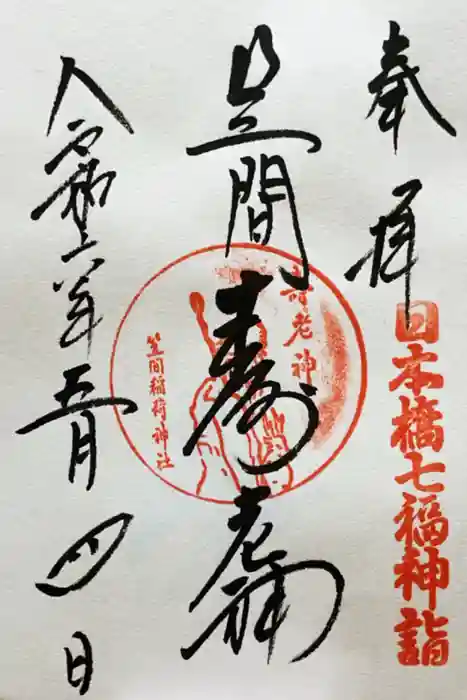 奉拝
日本橋七福神詣
笠間寿老神
寿老神
笠間稲荷神社
令和六年五月四日